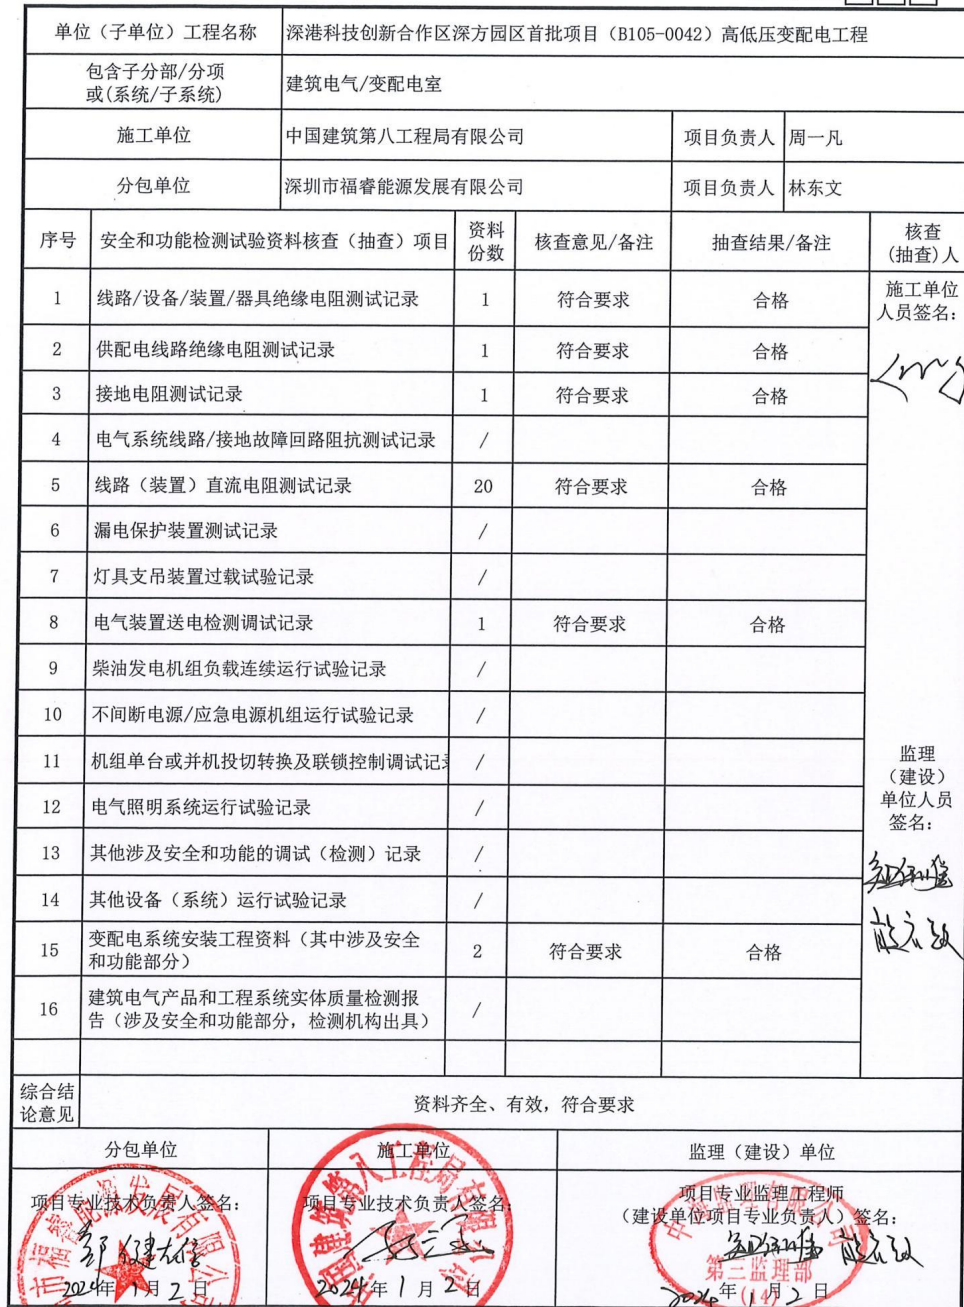 单位（子单位）工程名称 深港科技创新合作区深方园区首批项目（B105-0042）高低压变配电工程
包含子分部/分项
或(系统/子系统) 建筑电气/变配电室
施工单位 中国建筑第八工程局有限公司 项目负责人 周一凡
分包单位 深圳市福睿能源发展有限公司 项目负责人 林东文
序号 安全和功能检测试验资料核查（抽查）项目 资料份数 核查意见/备注 抽查结果/备注 核查(抽查)人
1 线路/设备/装置/器具绝缘电阻测试记录 1 符合要求 合格
施工单位
人员签名：
2 供配电线路绝缘电阻测试记录 1 符合要求 合格
3 接地电阻测试记录 1 符合要求 合格
4 电气系统线路/接地故障回路阻抗测试记录 /
5 线路（装置）直流电阻测试记录 20 符合要求 合格
6 漏电保护装置测试记录 /
7 灯具支吊装置过载试验记录 /
8 电气装置送电检测调试记录 1 符合要求 合格
9 柴油发电机组负载连续运行试验记录 /
10 不间断电源/应急电源机组运行试验记录 /
11 机组单台或并机投切转换及联锁控制调试记 /
监理
（建设）
单位人员
签名：
12 电气照明系统运行试验记录 /
13 其他涉及安全和功能的调试（检测）记录 /
14 其他设备（系统）运行试验记录 /
15 变配电系统安装工程资料（其中涉及安全
和功能部分） 2 符合要求 合格
16 建筑电气产品和工程系统实体质量检测报
告（涉及安全和功能部分，检测机构出具） /
综合结
论意见 资料齐全、有效，符合要求
分包单位 施工单位 监理（建设）单位
项目专业技术负责人签名： 项目专业技术负责人签名： 项目专业监理工程师
（建设单位项目专业负责人）签名：
第三监理部
(14)
2024年1月2日 2024年1月2日 2024年1月2日